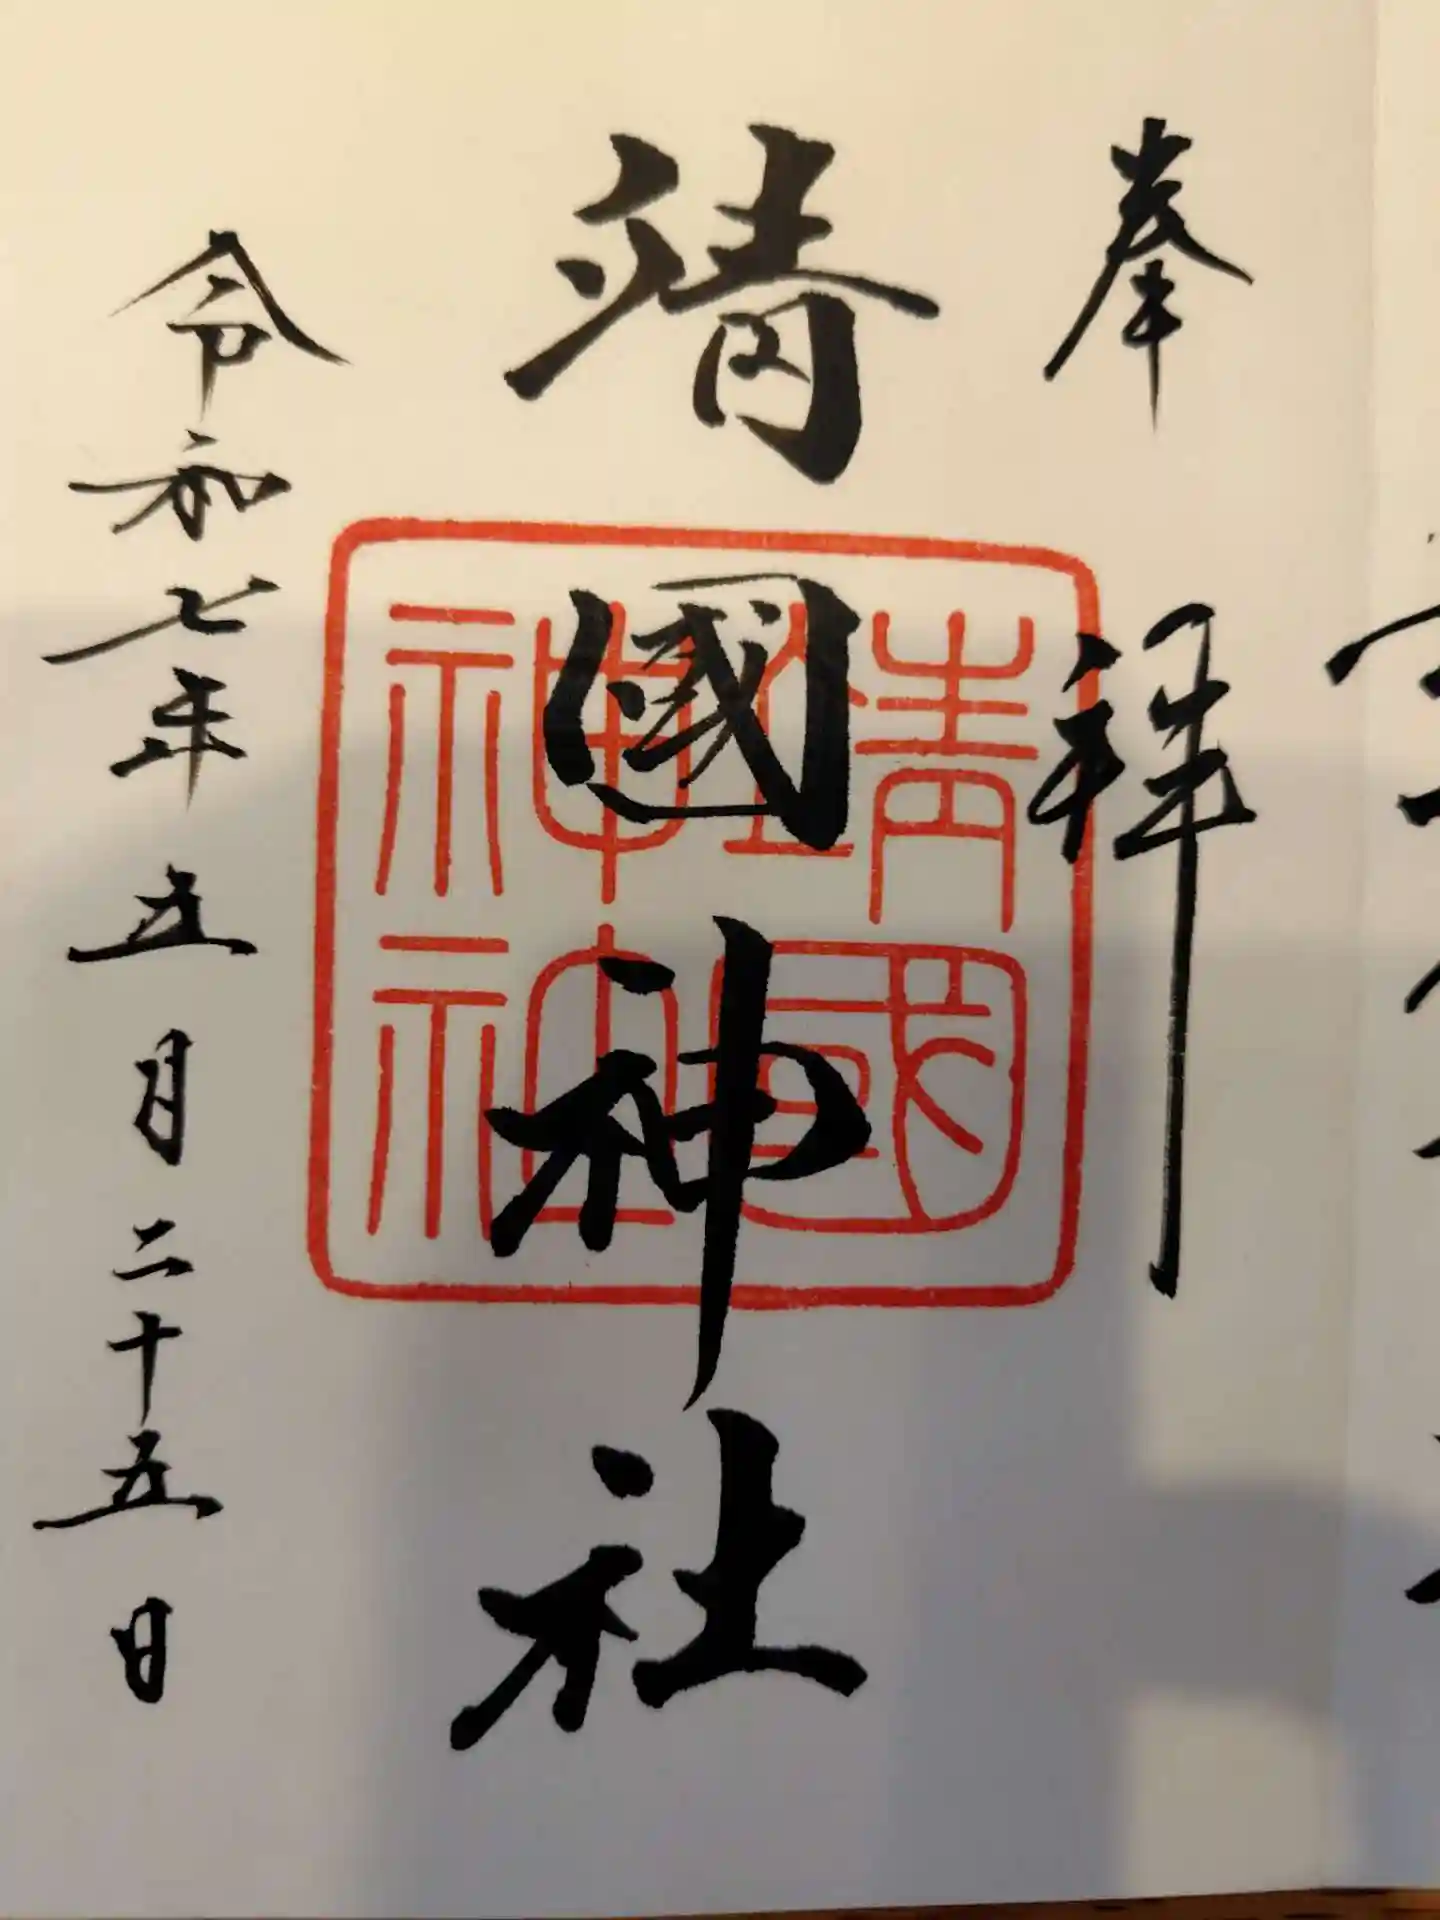 奉拝
靖國神社
靖國神社
令和七年五月二十五日